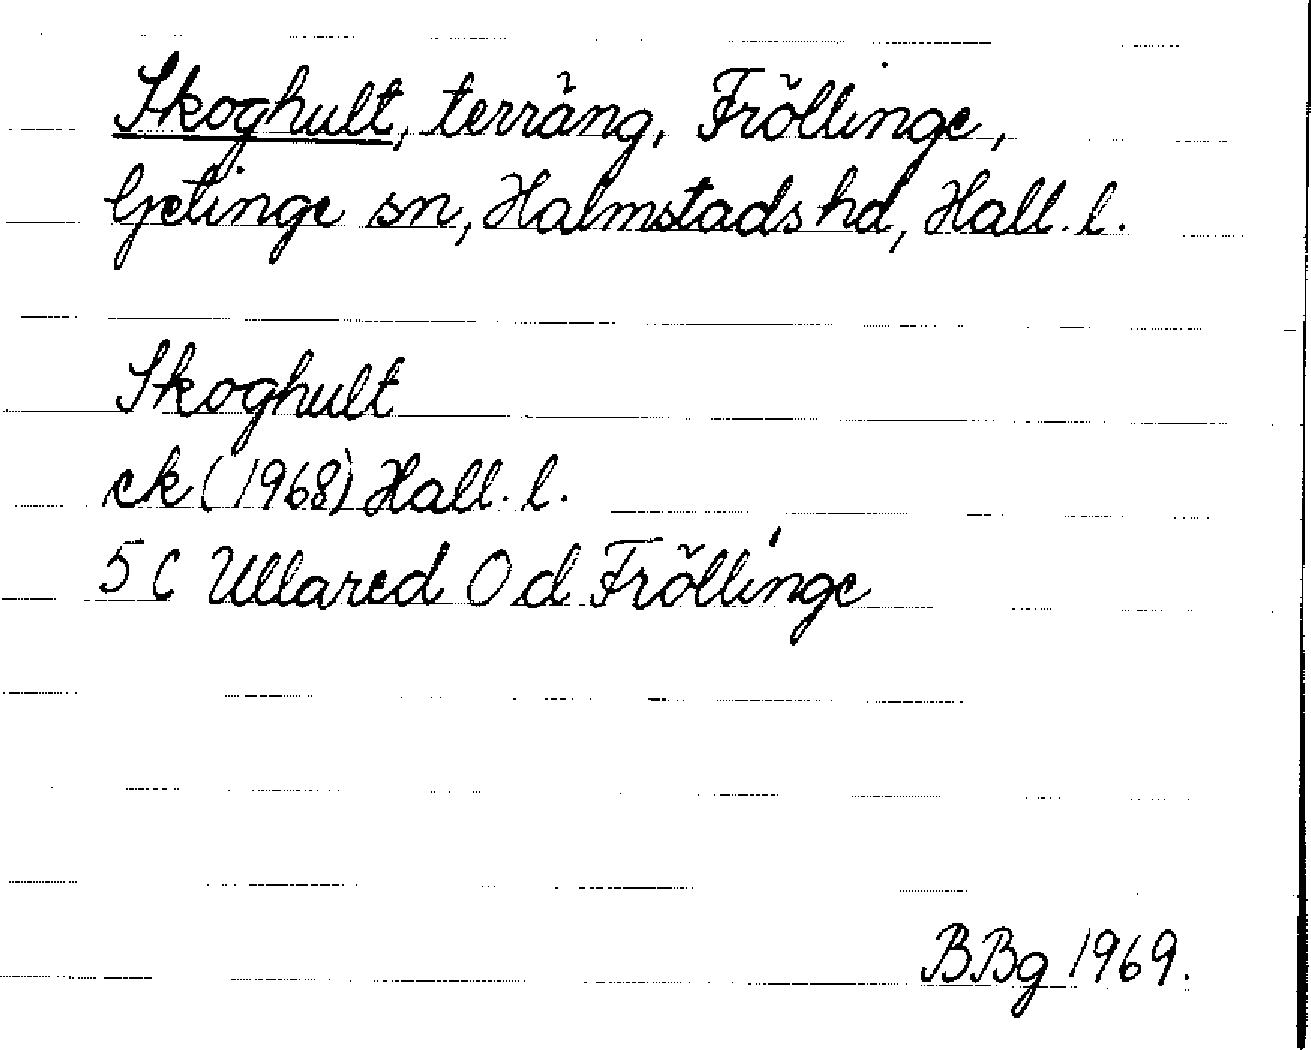 Skoghult, terräng, Fröllinge,
Getinge sn, Halmstads hd, Hall. l.
Skoghult
ek (1968) Hall. l.
5 C Ullared O d Fröllinge
BBg 1969.